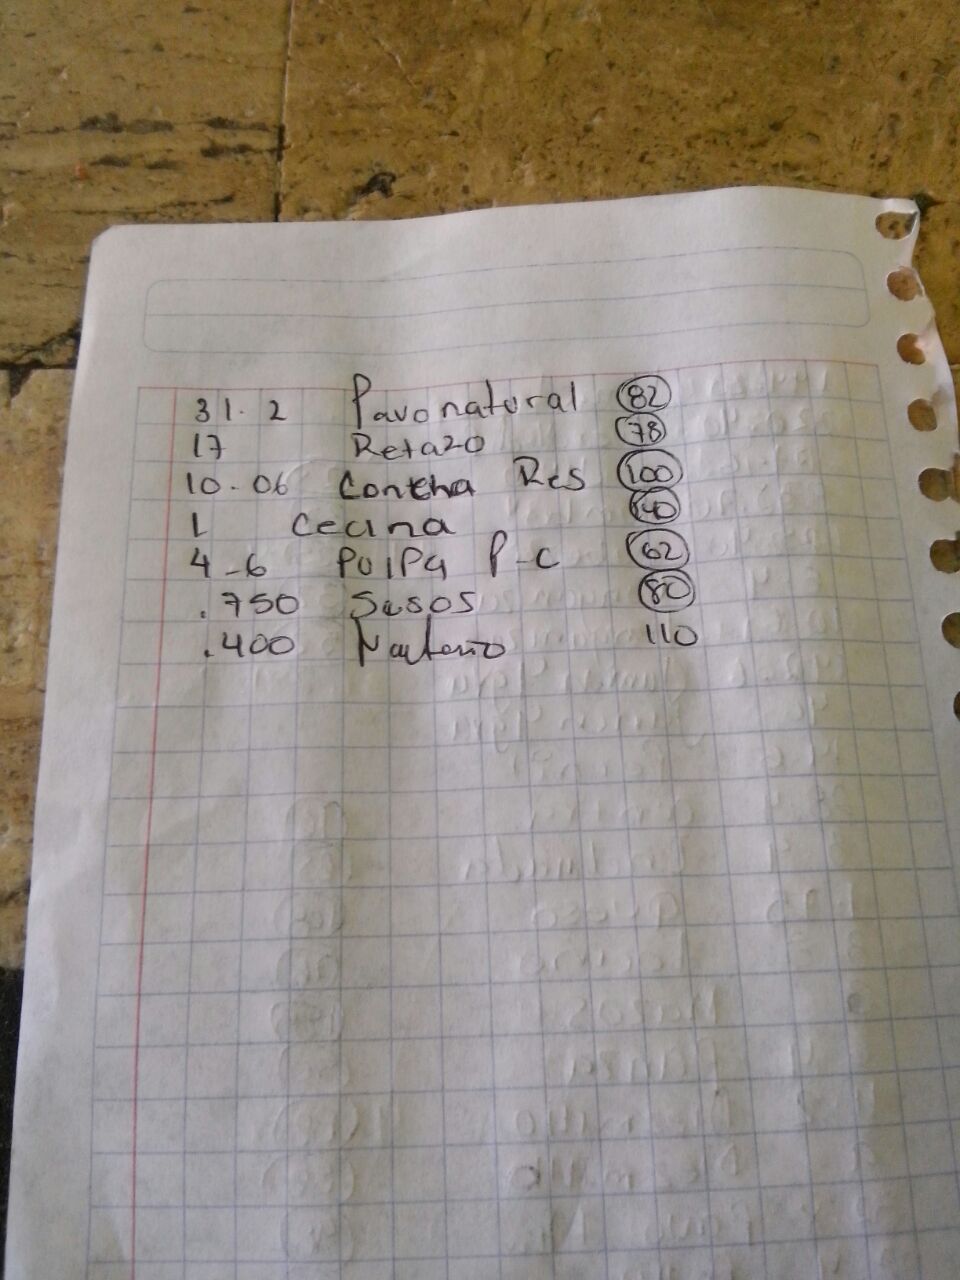 31.2 Pavo natural 82
17 Retazo 78
10.06 Concha Res 100
1 Cecina 140
4-6 Pulpa P-C 62
.750 Sesos 80
.400 110